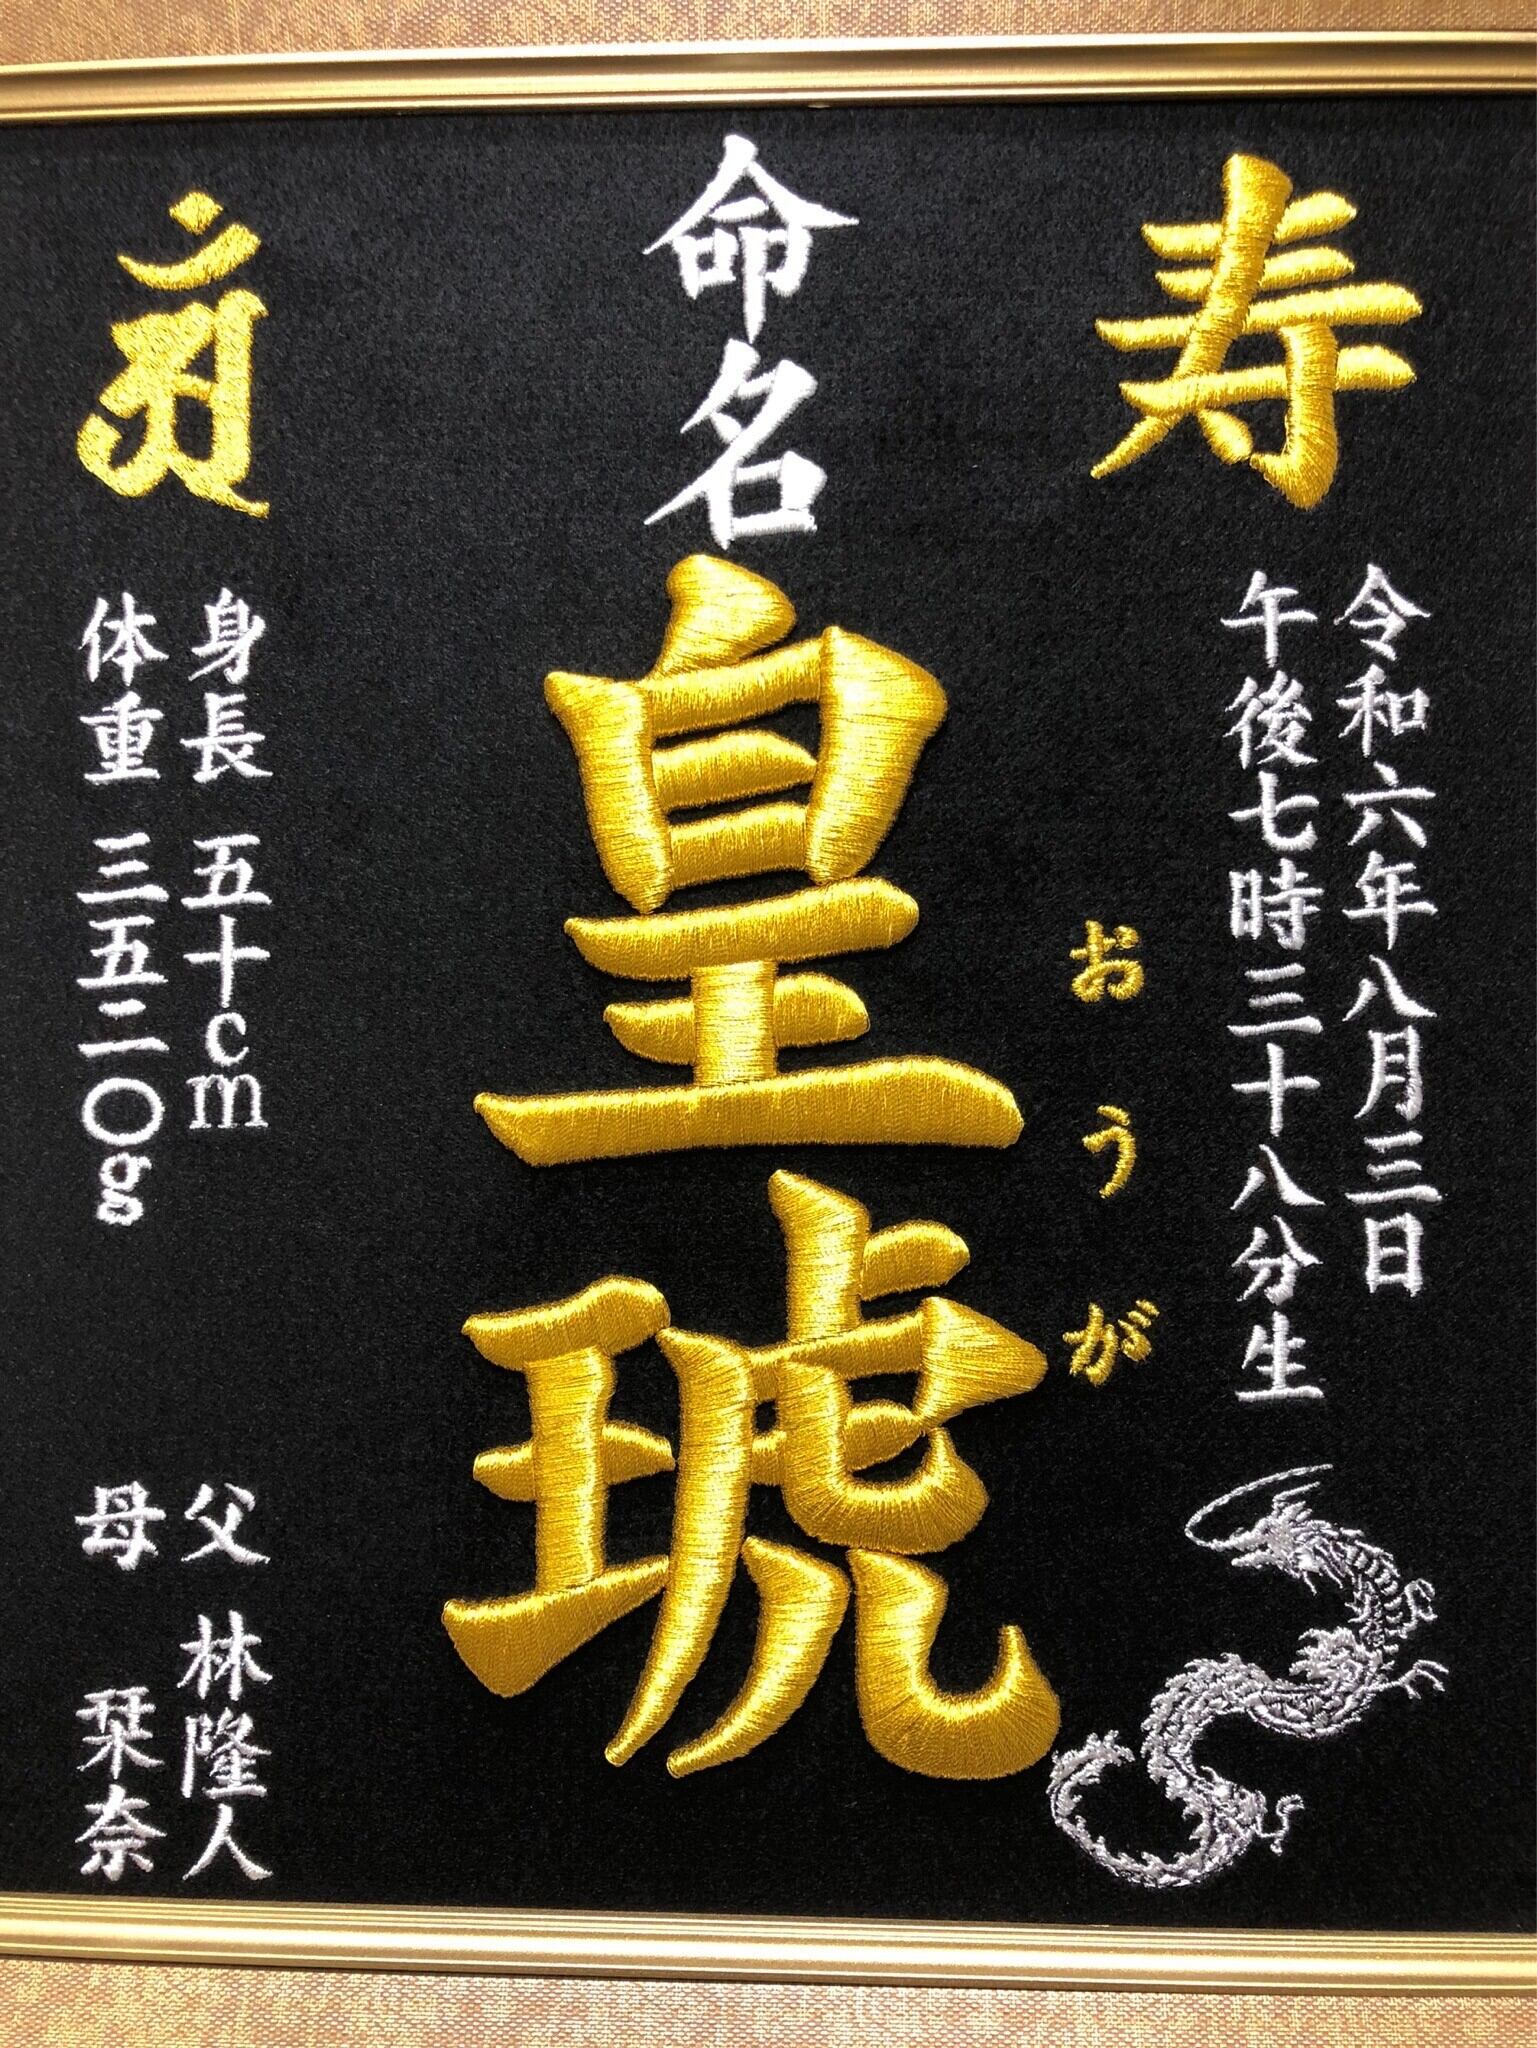 寿
令和六年八月三日
午後七時三十八分生
おうが
命名
皇琥
身長 五十cm
体重 三五二〇g
父 林隆人
母 栞奈